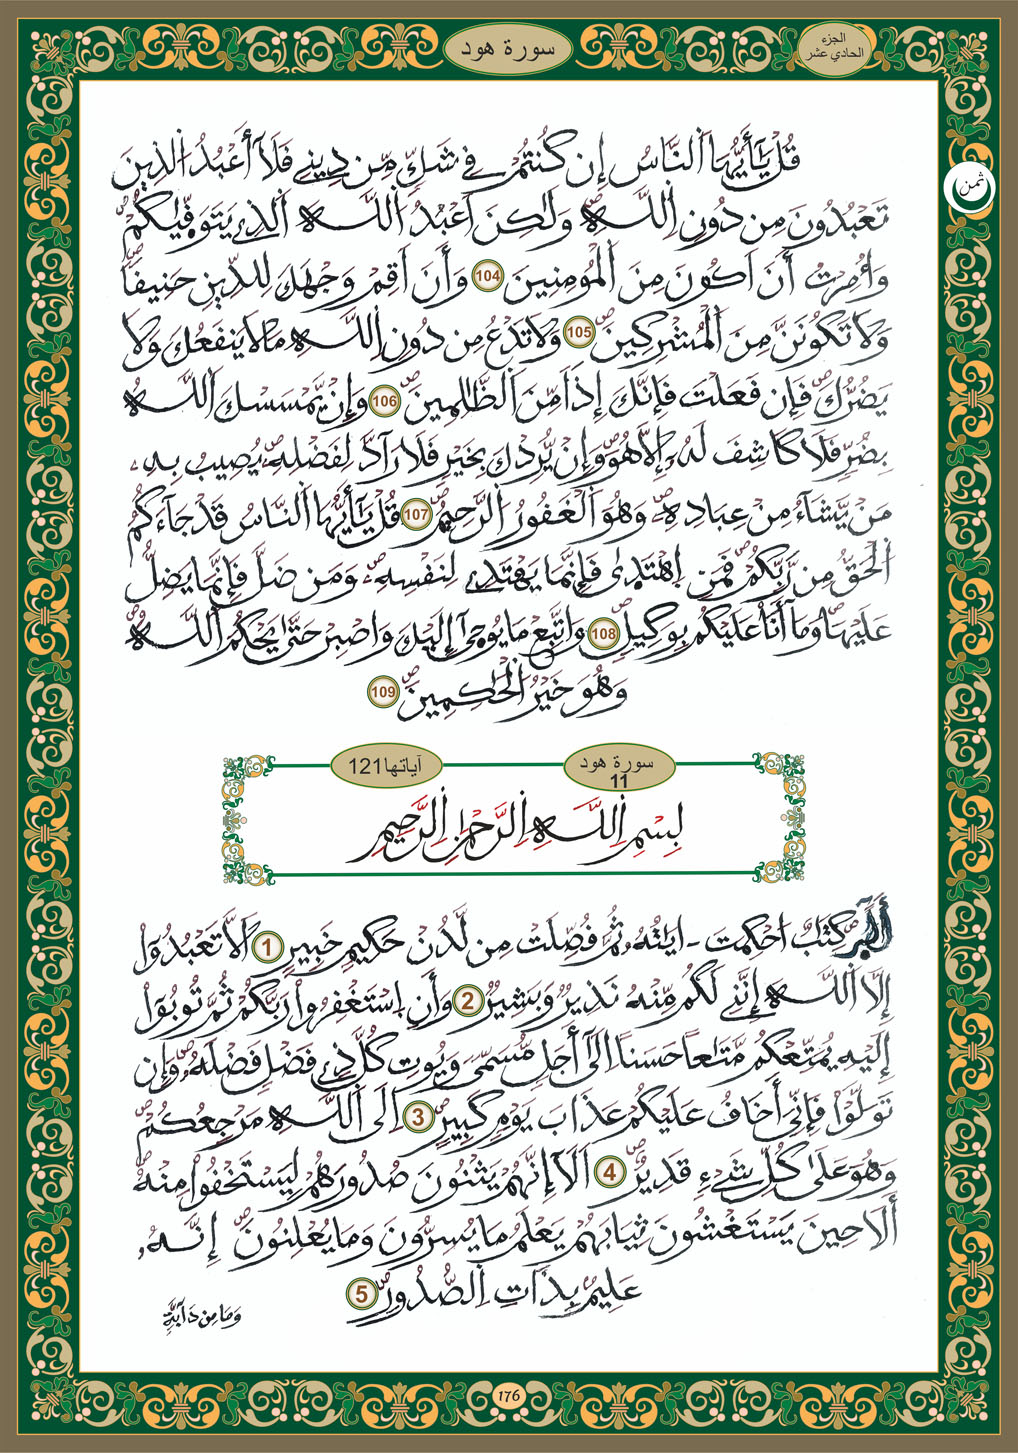 سورة هود
الجزء
الحادي عشر
ثمن
قُلْ يَٰٓأَيُّهَا اَ۬لنَّاسُ إِن كُنتُمْ فِے شَكّٖ مِّن دِينِے فَلَآ أَعْبُدُ اُ۬لذِينَ
تَعْبُدُونَ مِن دُونِ اِ۬للَّهِ وَلَٰكِنَ اَعْبُدُ اُ۬للَّهَ اَ۬لذِے يَتَوَفّ۪يٰكُمْ
وَأُمِرْتُ أَنَ اَكُونَ مِنَ اَ۬لْمُومِنِينَ 104 وَأَنَ اَقِمْ وَجْهَكَ لِلدِّينِ حَنِيفاٗ
وَلَا تَكُونَنَّ مِنَ اَ۬لْمُشْرِكِينَ 105 وَلَا تَدْعُ مِن دُونِ اِ۬للَّهِ مَا لَا يَنفَعُكَ وَلَا
يَضُرُّكَ فَإِن فَعَلْتَ فَإِنَّكَ إِذاٗ مِّنَ اَ۬لظَّٰلِمِينَ 106 وَإِنْ يَّمْسَسْكَ اَ۬للَّهُ
بِضُرّٖ فَلَا كَاشِفَ لَهُۥٓ إِلَّا هُوَ وَإِنْ يُّرِدْكَ بِخَيْرٖ فَلَا رَآدَّ لِفَضْلِهِۦ يُصِيبُ بِهِۦ
مَنْ يَّشَآءُ مِنْ عِبَادِهِۦ وَهُوَ اَ۬لْغَفُورُ اُ۬لرَّحِيمُ 107 قُلْ يَٰٓأَيُّهَا اَ۬لنَّاسُ قَدْ جَآءَكُمُ
اُ۬لْحَقُّ مِن رَّبِّكُمْ فَمَنِ اِ۪هْتَد۪ىٰ فَإِنَّمَا يَهْتَدِے لِنَفْسِهِۦ وَمَن ضَلَّ فَإِنَّمَا يَضِلُّ
عَلَيْهَا وَمَآ أَنَا عَلَيْكُم بِوَكِيلٖ 108 وَاتَّبِعْ مَا يُوح۪ىٰٓ إِلَيْكَ وَاصْبِرْ حَتَّىٰ يَحْكُمَ اَ۬للَّهُ
وَهُوَ خَيْرُ اُ۬لْحَٰكِمِينَ 109
سورة هود
11
آياتها 121
بِسْمِ اِ۬للَّهِ اِ۬لرَّحْمَٰنِ اِ۬لرَّحِيمِ
أَل۪ٓرۖ كِتَٰبٌ احْكِمَتَ ـ ايَٰتُهُۥ ثُمَّ فُصِّلَتْ مِن لَّدُنْ حَكِيمٍ خَبِيرٍ 1 اَلَّا تَعْبُدُوٓاْ
إِلَّا اَ۬للَّهَ إِنَّنِے لَكُم مِّنْهُ نَذِيرٞ وَبَشِيرٞ 2 وَأَنِ اِ۪سْتَغْفِرُواْ رَبَّكُمْ ثُمَّ تُوبُوٓاْ
إِلَيْهِ يُمَتِّعْكُم مَّتَٰعاً حَسَناً اِلَىٰٓ أَجَلٖ مُّسَمّىٗ وَيُوتِ كُلَّ ذِے فَضْلٖ فَضْلَهُۥ وَإِن
تَوَلَّوْاْ فَإِنِّيَ أَخَافُ عَلَيْكُمْ عَذَابَ يَوْمٖ كَبِيرٍ 3 اِلَى اَ۬للَّهِ مَرْجِعُكُمْ
وَهُوَ عَلَىٰ كُلِّ شَےْءٖ قَدِيرٌ 4 اَلَآ إِنَّهُمْ يَثْنُونَ صُدُورَهُمْ لِيَسْتَخْفُواْ مِنْهُ
أَلَا حِينَ يَسْتَغْشُونَ ثِيَابَهُمْ يَعْلَمُ مَا يُسِرُّونَ وَمَا يُعْلِنُونَ إِنَّهُۥ
عَلِيمُۢ بِذَاتِ اِ۬لصُّدُورِ 5
وَمَا مِن دَآبَّةٖ
176